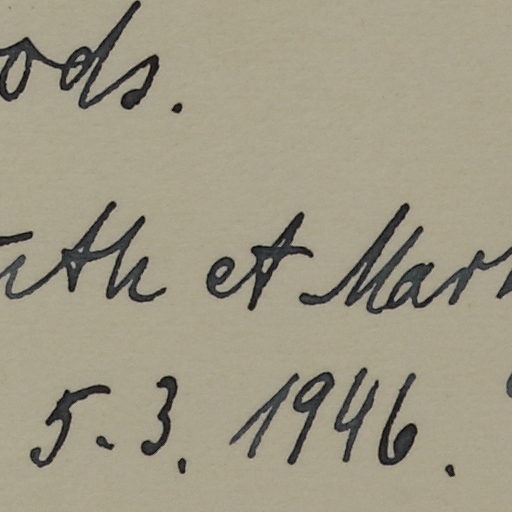 ods.
uth et Mar
5.3.1946.